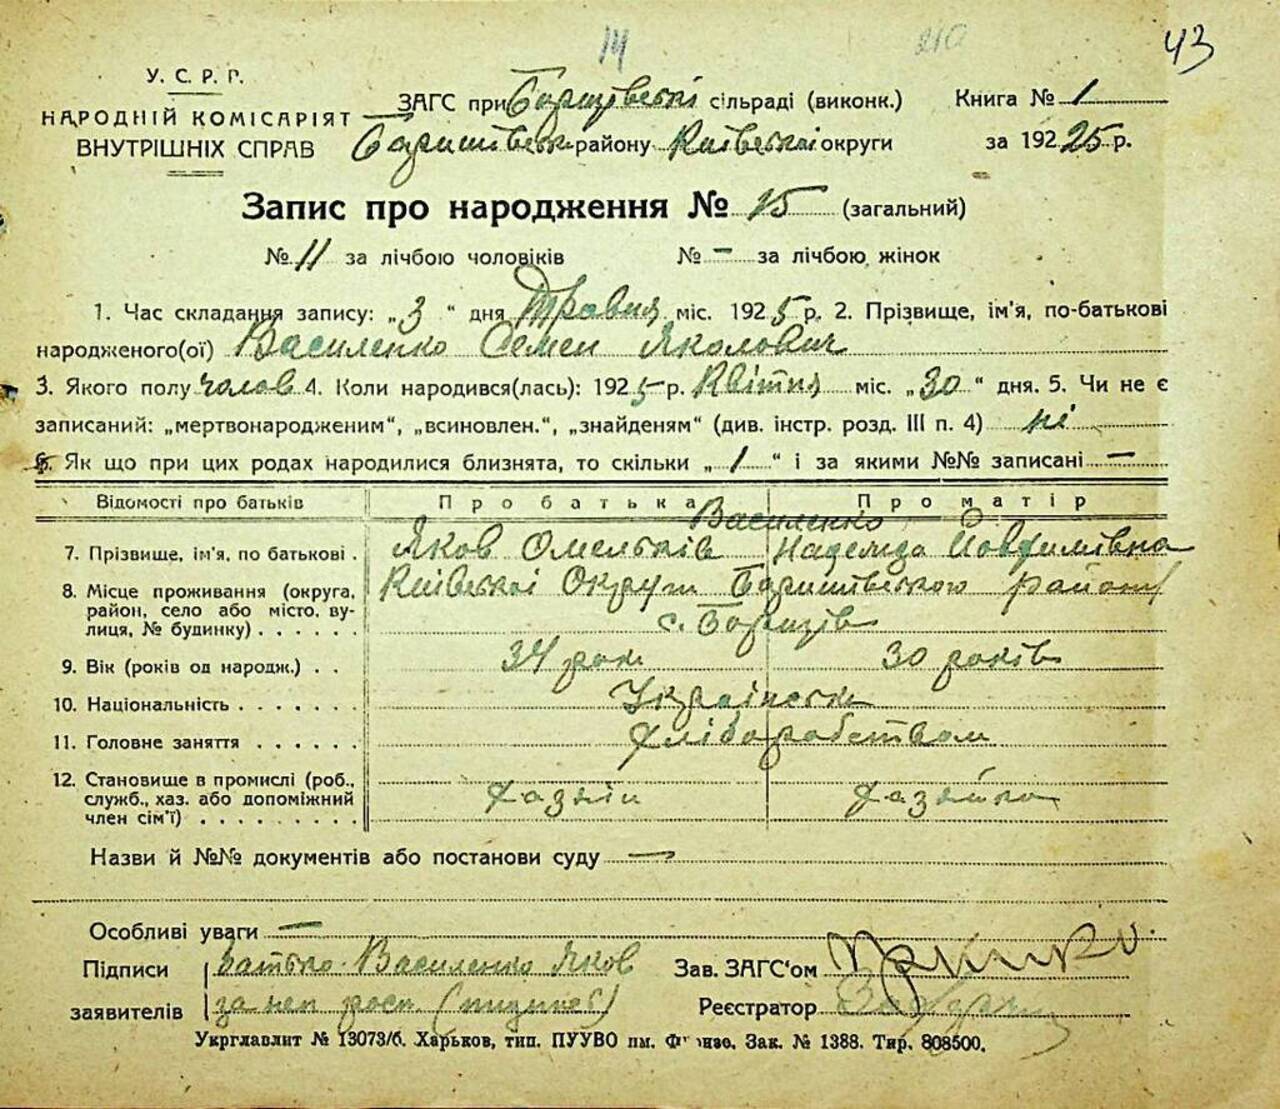 14 210 43
У. С. Р. Р.
НАРОДНІЙ КОМІСАРІЯТ
ВНУТРІШНІХ СПРАВ
ЗАГС при Борщівські сільраді (виконк.) Книга № 1
Баришівськ району Київської округи за 192 25 р.
Запис про народження № 15 (загальний)
№ 11 за лічбою чоловіків № — за лічбою жінок
1. Час складання запису: „ 3 “ дня Травня міс. 192 5 р. 2. Прізвище, ім'я, по-батькові
народженого(ої) Василенко Семен Яколович
3. Якого полу чолов 4. Коли народився(лась): 192 5 р. Квітня міс. „ 30 “ дня. 5. Чи не є
записаний: „мертвонародженим“, „всиновлен.“, „знайденям“ (див. інстр. розд. III п. 4) ні
6. Як що при цих родах народилися близнята, то скільки „ 1 “ і за якими №№ записані —
Відомості про батьків Про батька Про матір
Василенко
7. Прізвище, ім'я, по батькові . Яков Омельків Надежда Йовхимівна
8. Місце проживання (округа, район, село або місто, вулиця, № будинку) . . . . . . Київської Округи Баришівського району
с. Борщів
9. Вік (років од народж.) . . 34 рок 30 років
10. Національність . . . . . . . Українськ
11. Головне заняття . . . . . . Хліборобством
12. Становище в промислі (роб., служб., хаз. або допоміжний член сім'ї) . . . . . . . . . Хазяїн Хазяйка
Назви й №№ документів або постанови суду —
Особливі уваги —
Підписи Батько Василенко Яков Зав. ЗАГС‘ом
заявителів за неп росп. Реєстратор
Укрглавліт № 13073/б. Харьков, тип. ПУУВО им. Фрунзе. Зак. № 1388. Тир. 808500.